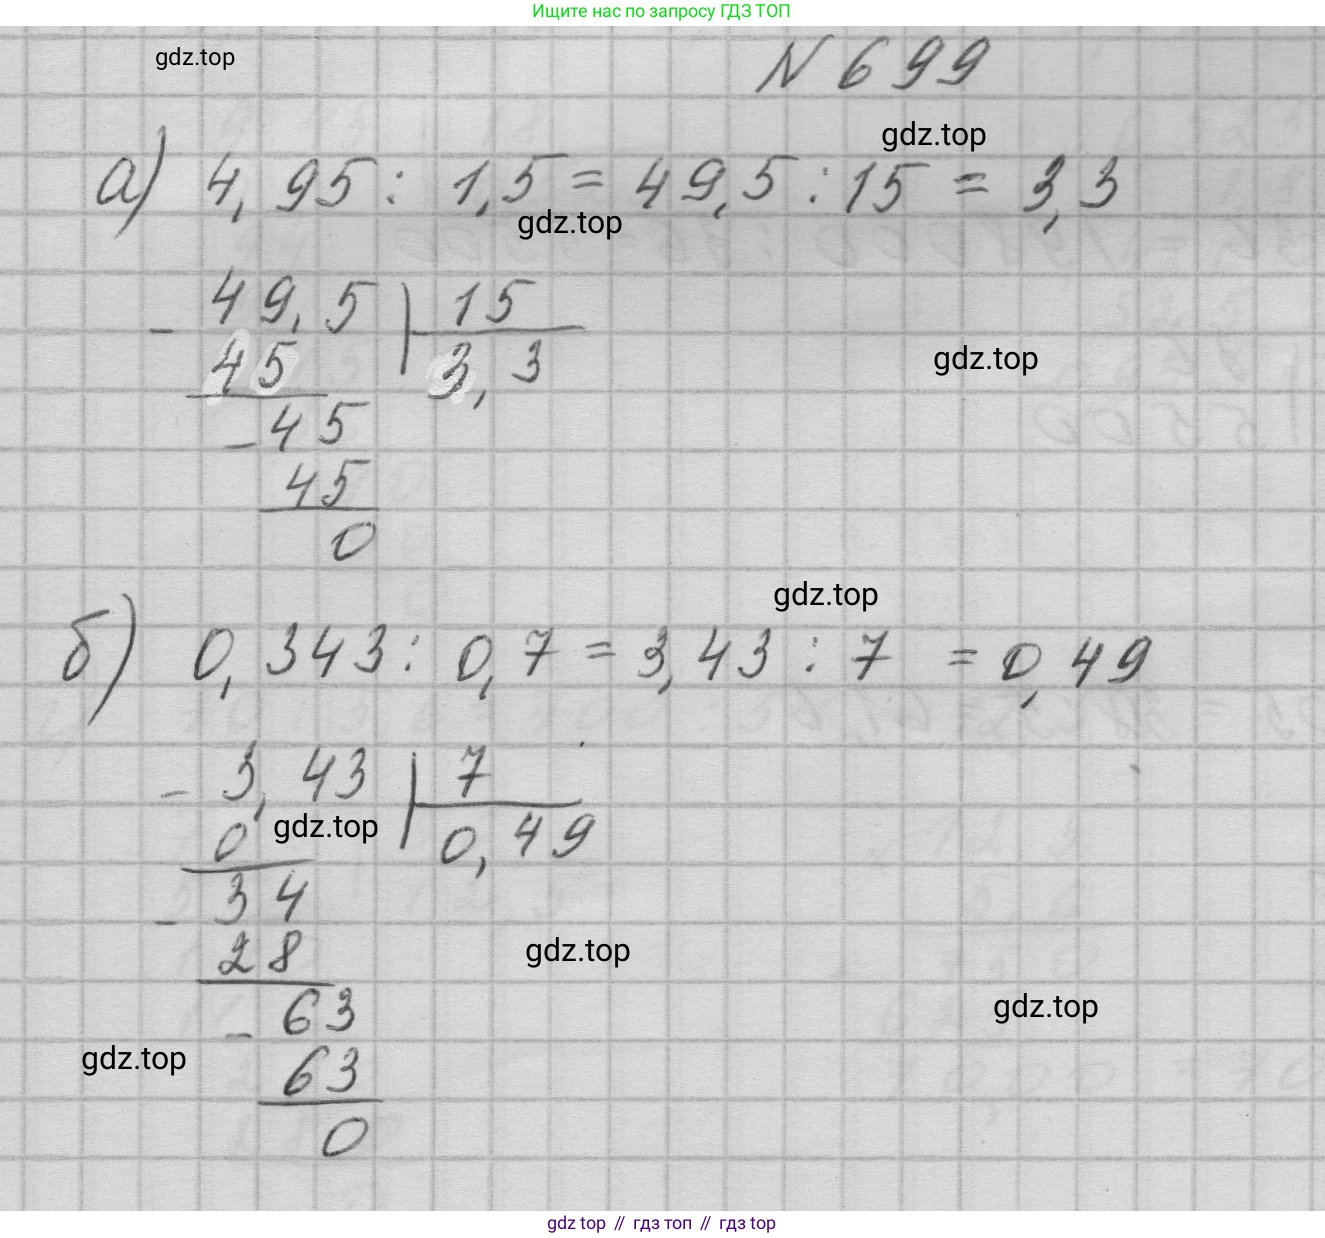 Ищите нас по запросу ГДЗ ТОП
gdz.top
N 699
gdz.top
а) 4,95 : 1,5 = 49,5 : 15 = 3,3
gdz.top
- 49,5 | 15
45 3,3
gdz.top
- 45
45
0
gdz.top
б) 0,343 : 0,7 = 3,43 : 7 = 0,49
- 3,43 | 7
0 gdz.top 0,49
- 34
28
gdz.top
- 63
gdz.top
gdz.top
63
0
gdz top // гдз топ // gdz top